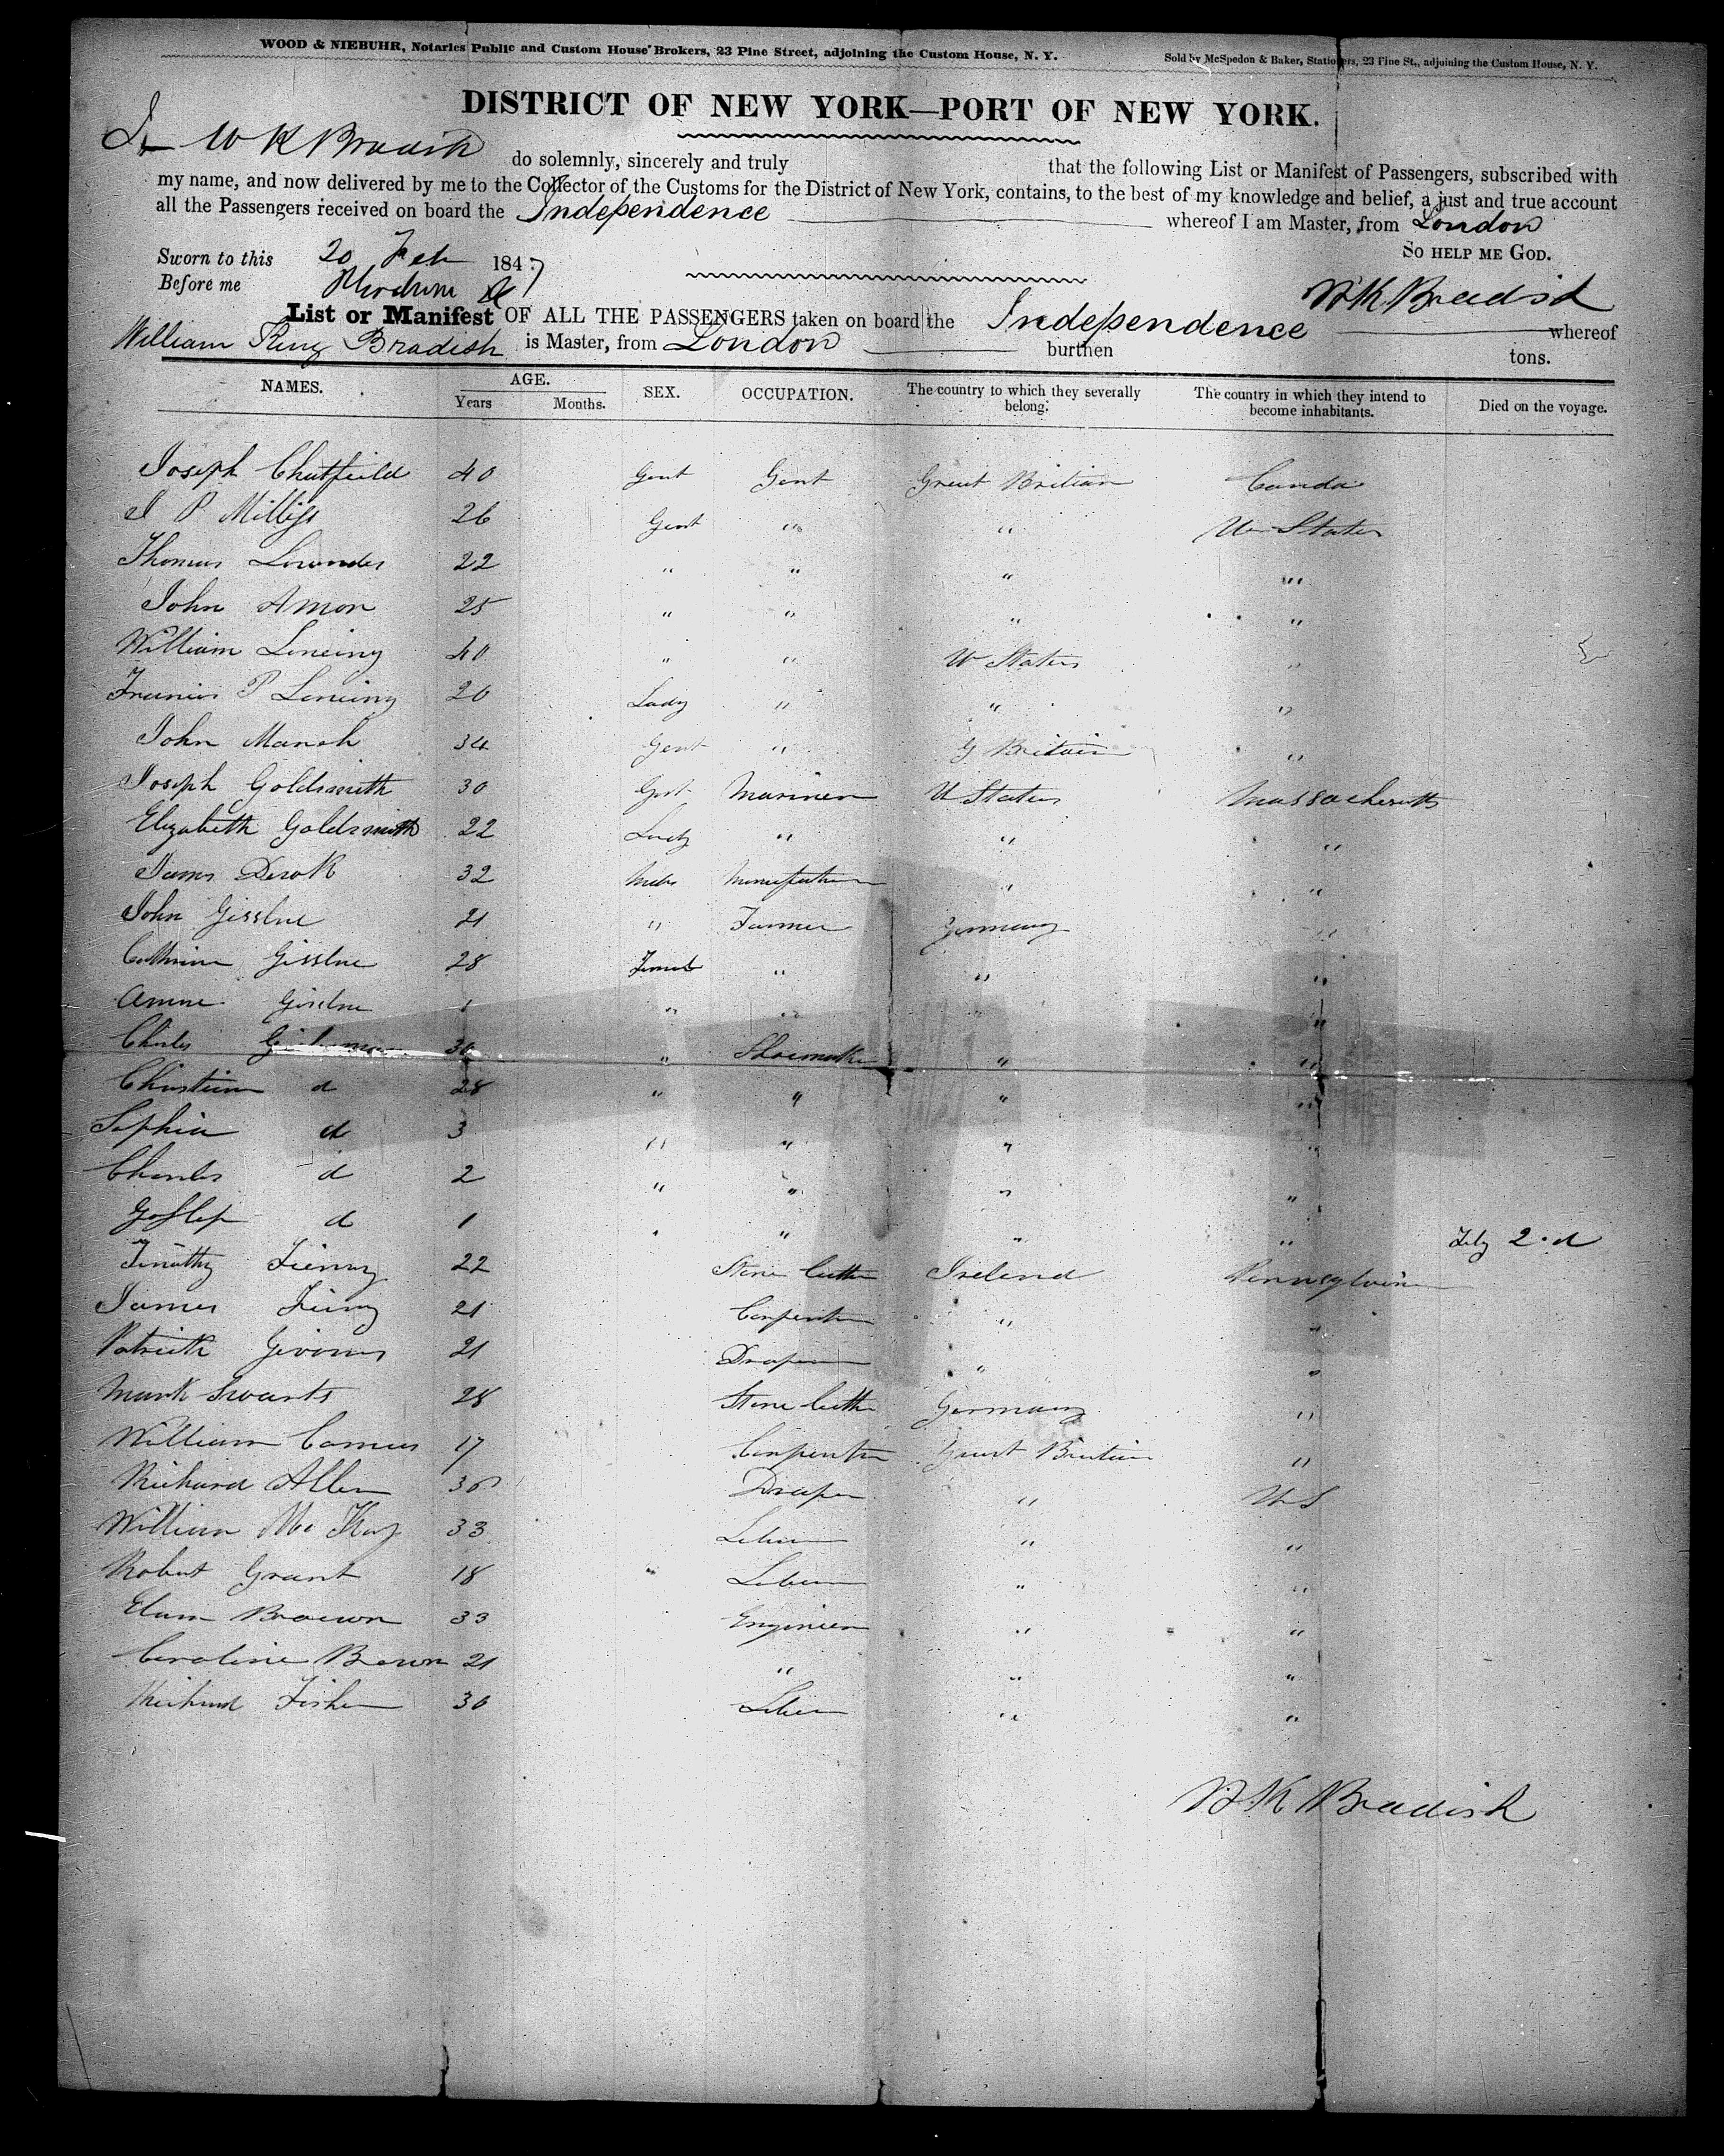 WOOD & NIEBUHR, Notaries Public and Custom House Brokers, 23 Pine Street, adjoining the Custom House, N. Y.
Sold by McSpedon & Baker, Stationers, 23 Pine St., adjoining the Custom House, N. Y.
DISTRICT OF NEW YORK—PORT OF NEW YORK.
I W K Bradish do solemnly, sincerely and truly that the following List or Manifest of Passengers, subscribed with
my name, and now delivered by me to the Collector of the Customs for the District of New York, contains, to the best of my knowledge and belief, a just and true account
all the Passengers received on board the Independence whereof I am Master, from London
Sworn to this 20 Feb 1847 SO HELP ME GOD.
Before me W K Bradish
List or Manifest OF ALL THE PASSENGERS taken on board the Independence whereof
William King Bradish is Master, from London burthen tons.
NAMES. AGE. SEX. OCCUPATION. The country to which they severally belong. The country in which they intend to become inhabitants. Died on the voyage.
Years Months.
Joseph Chatfield 40 Gent Gent Great Britian Canda
P Milliss 26 Gent " " U States
Thomas Lowndes 22 " " " "
John Amon 25 " " " "
William 40 " " U States "
P 20 Lady " " "
John Marsh 34 Gent " G Britain "
Joseph Goldsmith 30 Gent Mariner U States Massachusetts
Elizabeth Goldsmith 22 Lady " " "
James 32 Male " "
John Gisslne 21 " Farmer Germany "
Cathrine Gisslne 28 Female " " "
Gisslne 1 " " " "
Charles 30 " Shoemaker " "
Christian d 28 " " " "
Sophia d 3 " " " "
Charles d 2 " " " "
d 1 " " " " Feby 2.d
Timothy 22 Stone Cutter Ireland Pennsylvania
James 21 Carpenter " "
Patrick 21 Draper " "
Mark Swarts 28 Stone Cutter Germany "
William 17 Carpenter Great Britain "
Richard Allen 30 Draper " U S
William Mc Kay 33 " "
Robert Grant 18 " "
Brown 33 Engineer " "
Caroline Brown 21 " " "
Richard Fisher 30 " "
W K Bradish